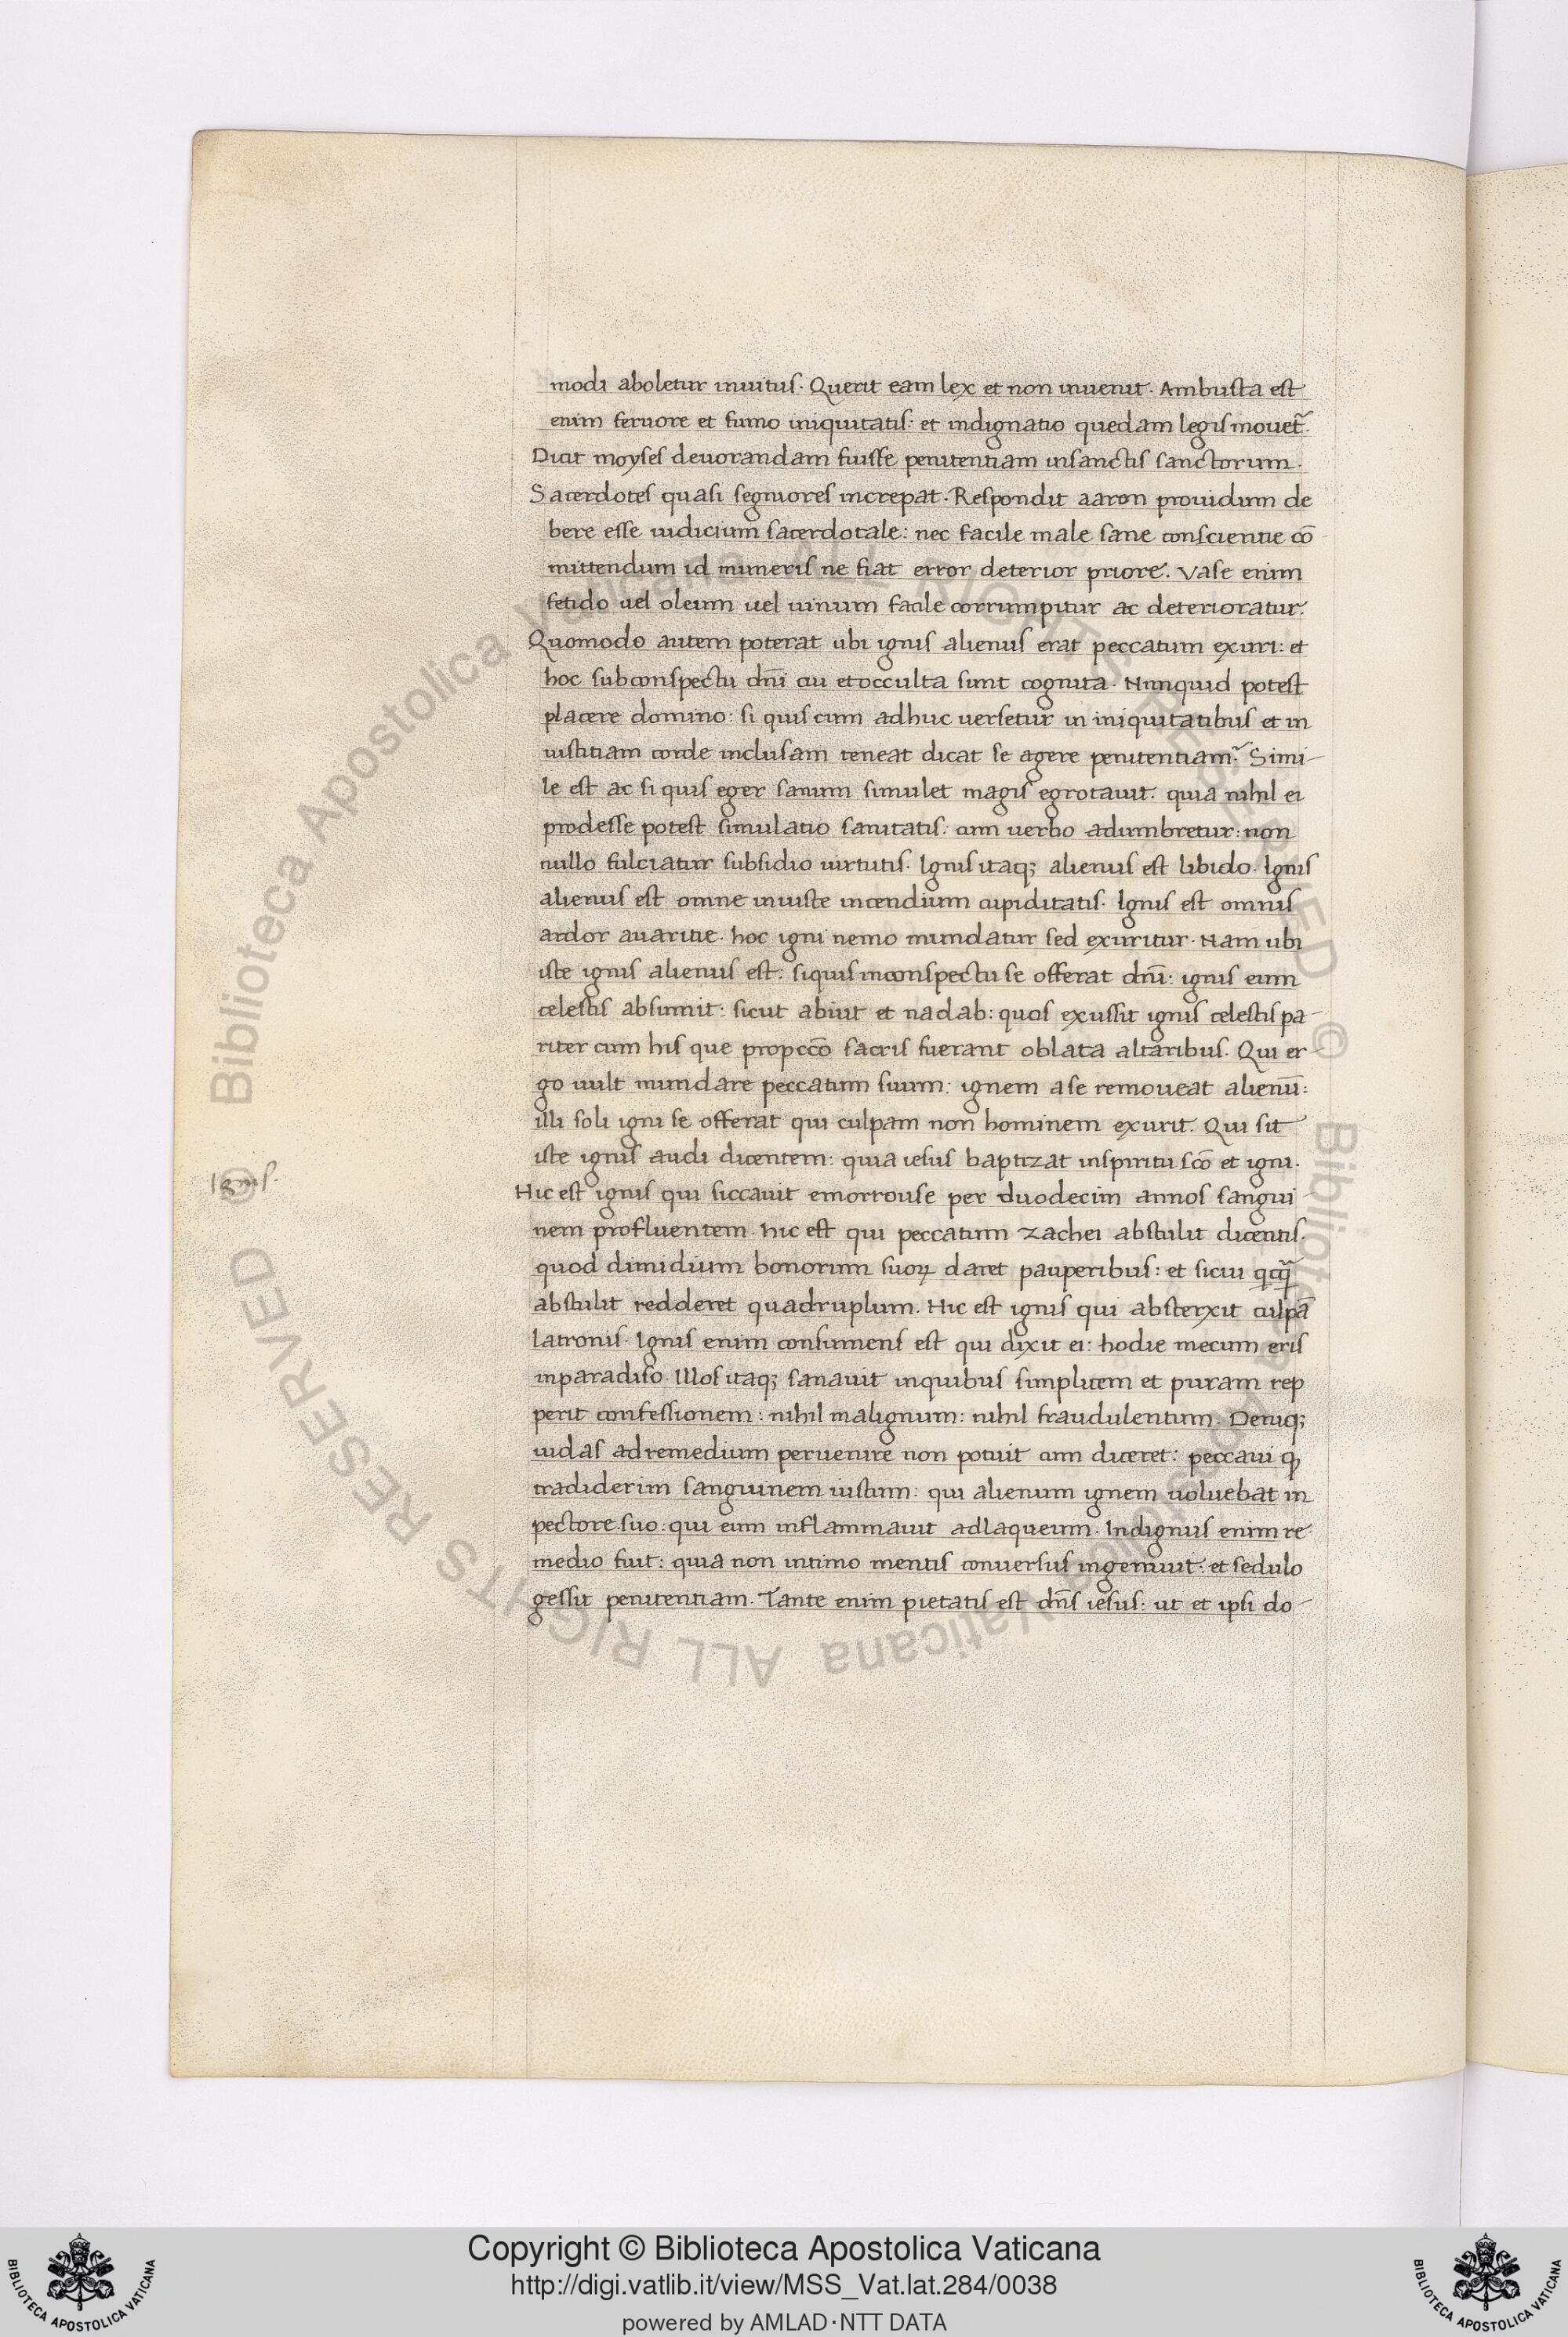 modi aboletur inuitus. Querit eam lex et non inuenit. Ambusta est
enim feruore et fumo iniquitatis: et indignatio quedam legis mouet̃.
Dicit moyses deuorandam fuisse penitentiam insanctis sanctorum.
Sacerdotes quasi segniores increpat. Respondit aaron prouidum de
bere esse iudicium sacerdotale: nec facile male sane conscientie cō
mittendum id muneris ne fiat error deterior priore. Vase enim
fetido uel oleum uel uinum facile corrumpitur ac deterioratur.
Quomodo autem poterat ubi ignis alienus erat peccatum exuri: et
hoc subconspectu dn̄i cui etocculta sunt cognita. Nunquid potest
placere domino: si quis cum adhuc uersetur in iniquitatibus et in
iustitiam corde inclusam teneat dicat se agere penitentiam. Simi-
le est ac si quis eger sanum simulet magis egrotauit. quia nihil ei
prodesse potest simulatio sanitatis. cum uerbo adumbretur: non
nullo fulciatur subsidio uirtutis. Ignis itaq; alienus est libido. Ignis
alienus est omne iniuste incendium cupiditatis. Ignis est omnis
ardor auaritie. hoc igni nemo mundatur sed exuritur. Nam ubi
iste ignis alienus est. siquis inconspectu se offerat dn̄i: ignis eum
celestis absumit: sicut abiut et nadab: quos exussit ignis celestis pa-
riter cum his que propccō sacris fuerant oblata altaribus. Qui er-
go uult mundare peccatum suum: ignem ase remoueat alienū:
illi soli igni se offerat qui culpam non hominem exurit. Qui sit
iste ignis audi dicentem: quia iesus baptizat inspiritu scō et igni.
Ignis.
Hic est ignis qui siccauit emorrouse per duodecim annos sangui-
nem profluentem. Hic est qui peccatum zachei abstulit dicentis.
quod dimidium bonorum suoꝝ daret pauperibus: et sicui
abstulit redderet quadruplum. Hic est ignis qui absterxit culpā
latronis. Ignis enim consumens est qui dixit ei: hodie mecum eris
inparadiso. Illos itaq; sanauit inquibus simplicem et puram rep
perit confessionem: nihil malignum: nihil fraudulentum. Deniq;
iudas adremedium peruenire non potuit cum diceret: peccaui ꝙ
tradiderim sanguinem iustum: qui alienum ignem uoluebat in
pectore suo: qui eum inflammauit adlaqueum. Indignus enim re
medio fuit: quia non intimo mentis conuersus ingemuit: et sedulo
gessit penitentiam. Tante enim pietatis est dn̄s iesus: ut et ipsi do-
© Biblioteca Apostolica Vaticana ALL RIGHTS RESERVED
© Biblioteca Apostolica Vaticana ALL RIGHTS RESERVED
Copyright © Biblioteca Apostolica Vaticana
http://digi.vatlib.it/view/MSS_Vat.lat.284/0038
powered by AMLAD·NTT DATA
BIBLIOTECA APOSTOLICA VATICANA
BIBLIOTECA APOSTOLICA VATICANA